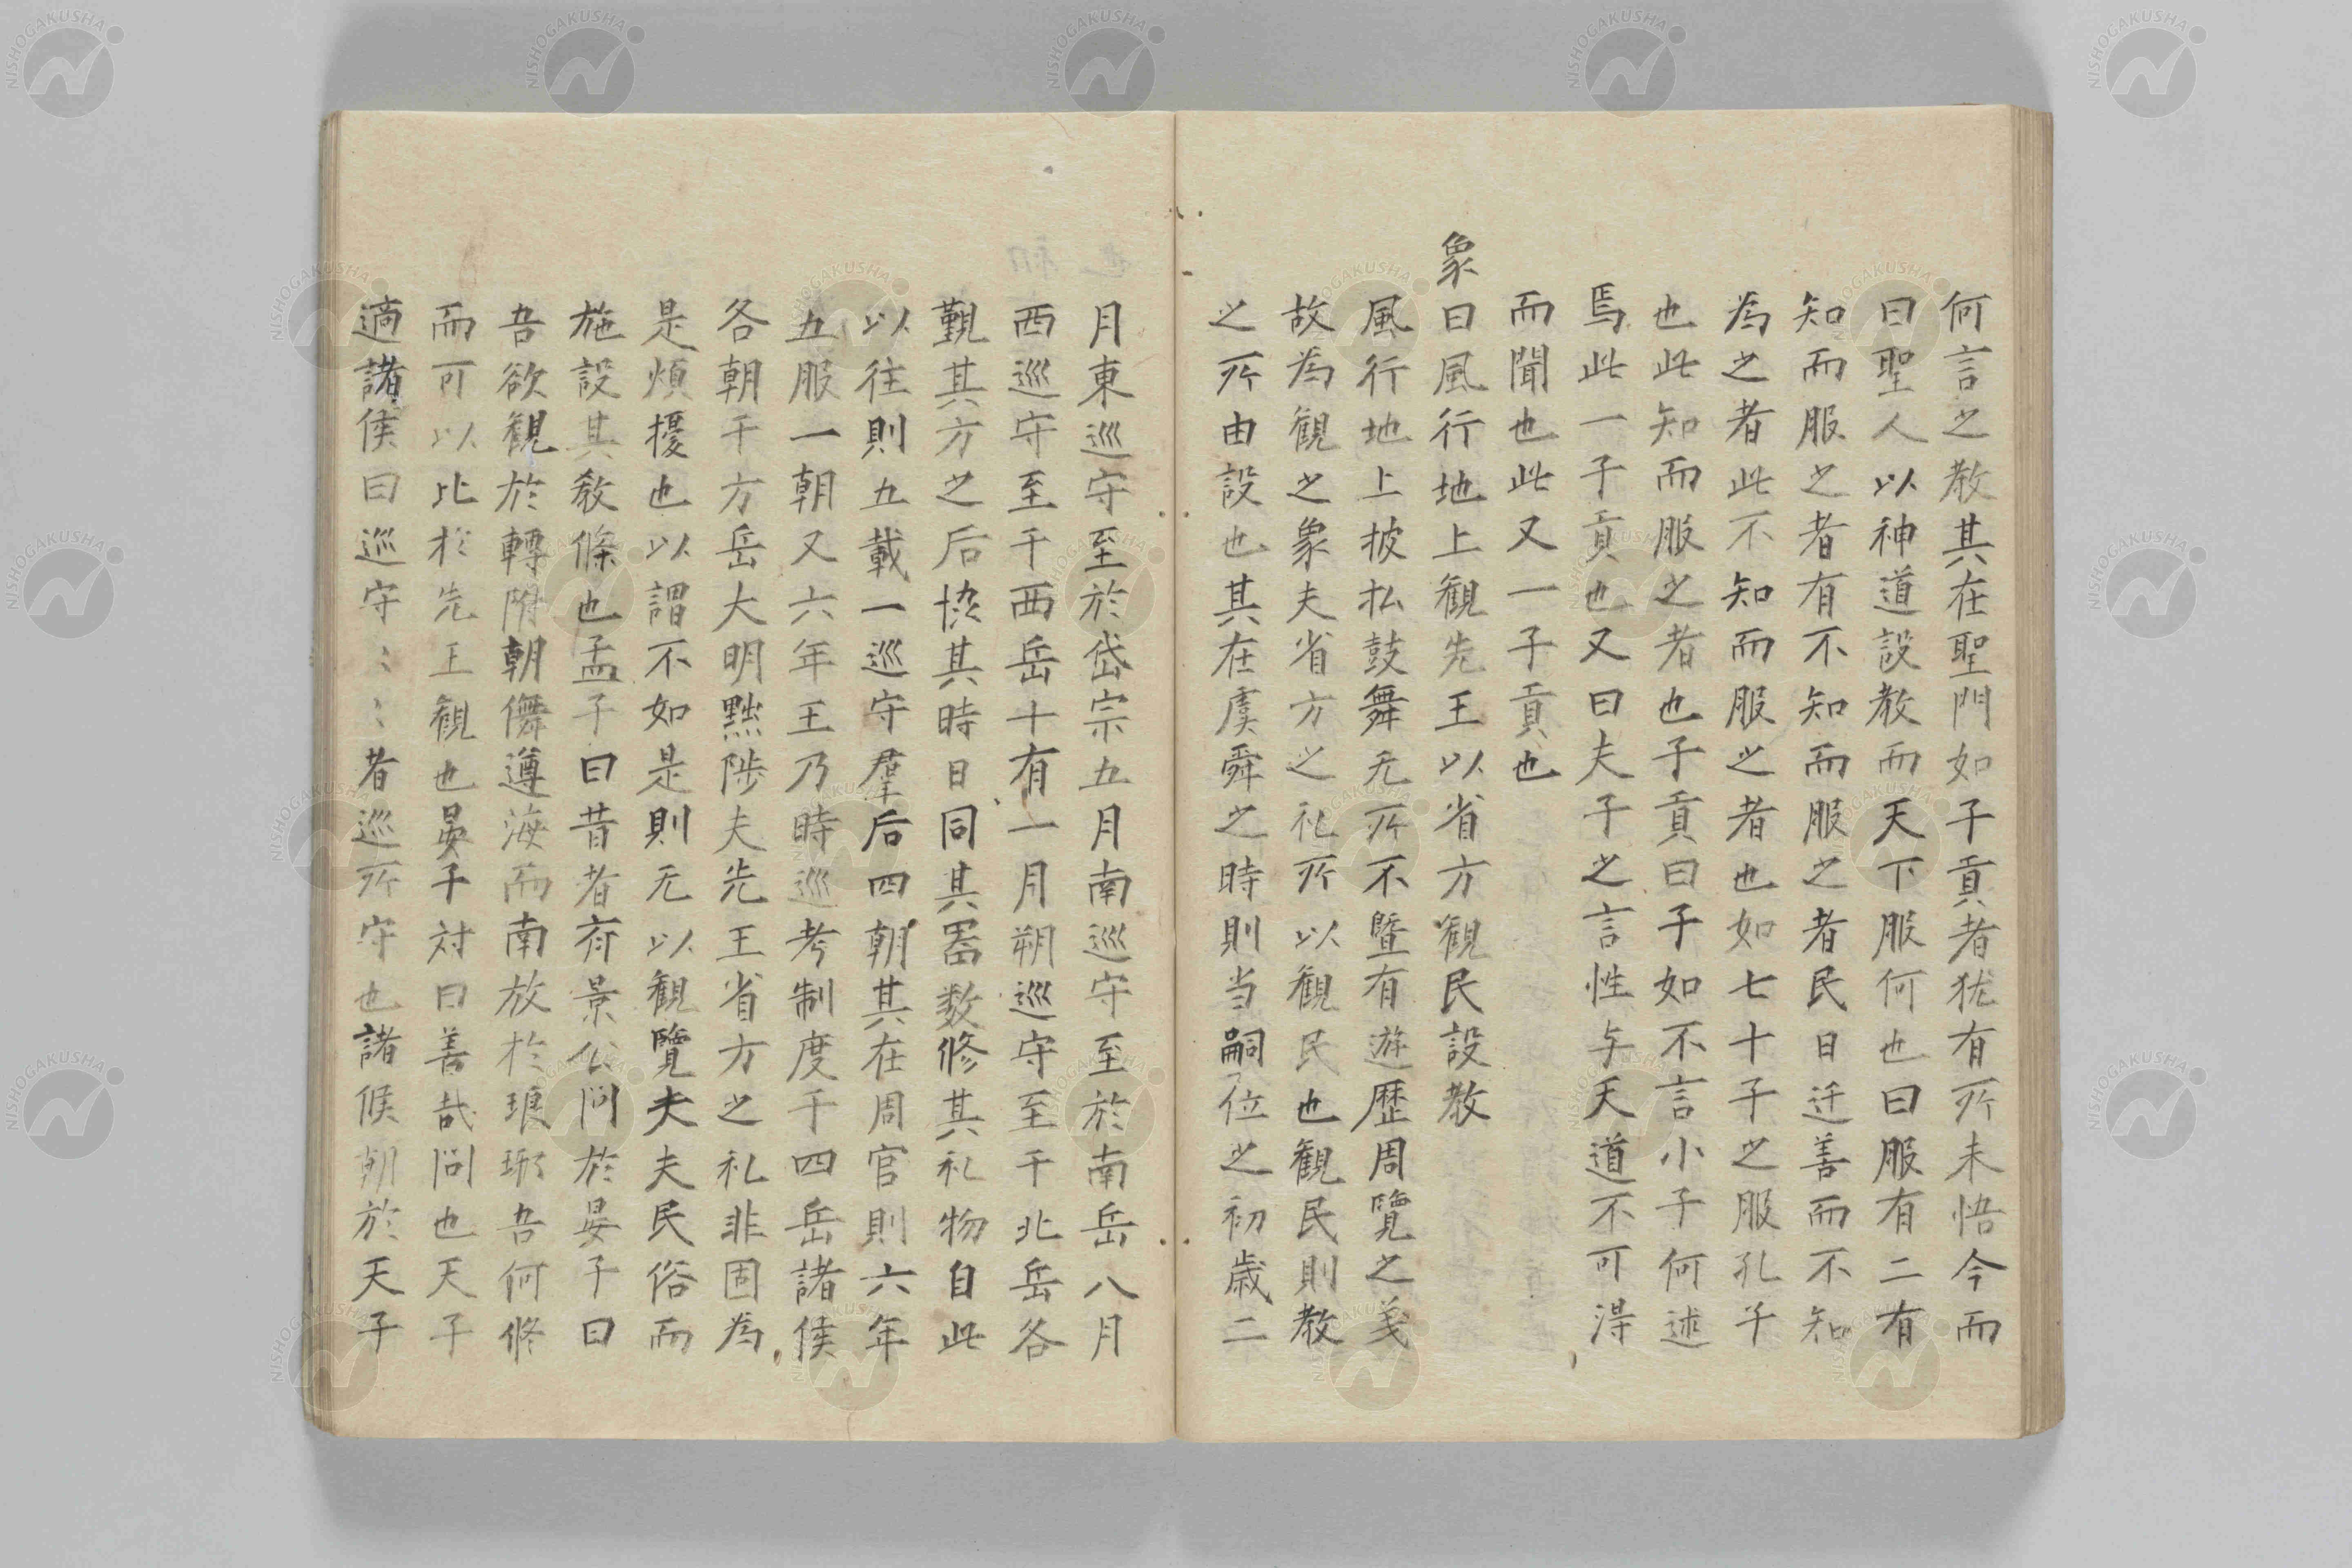 何言之教其在聖門如子貢者犹有所未悟今而
曰聖人以神道設教而天下服何也曰服有二有
知而服之者有不知而服之者民日迁善而不知
為之者此不知而服之者也如七十子之服孔子
也此知而服之者也子貢曰子如不言小子何述
焉此一子貢也又曰夫子之言性与天道不可淂
而聞也此又一子貢也
象曰風行地上観先王以省方観民設教
風行地上披払鼓舞无所不曁有遊歴周覽之義
故為観之象夫省方之礼所以観民也観民則教
之所由設也其在虞舜之時則当嗣位之初歳二
月東巡守至於岱宗五月南巡守至於南岳八月
西巡守至于西岳十有一月朔巡守至于北岳各
覲其方之后恊其時日同其噐数修其礼物自此
以往則五載一巡守羣后四朝其在周官則六年
五服一朝又六年王乃時巡考制度于四岳諸侯
各朝于方岳大明黜陟夫先王省方之礼非固為
是煩擾也以謂不如是則无以観覽夫夫民俗而
施設其教條也孟子曰昔者斉景公問於晏子曰
吾欲観於轉附朝儛遵海而南放於琅琊吾何修
而可以比於先王観也晏子対曰善哉問也天子
適諸侯曰巡守〻〻〻者巡所守也諸候朝於天子
NISHOGAKUSHA